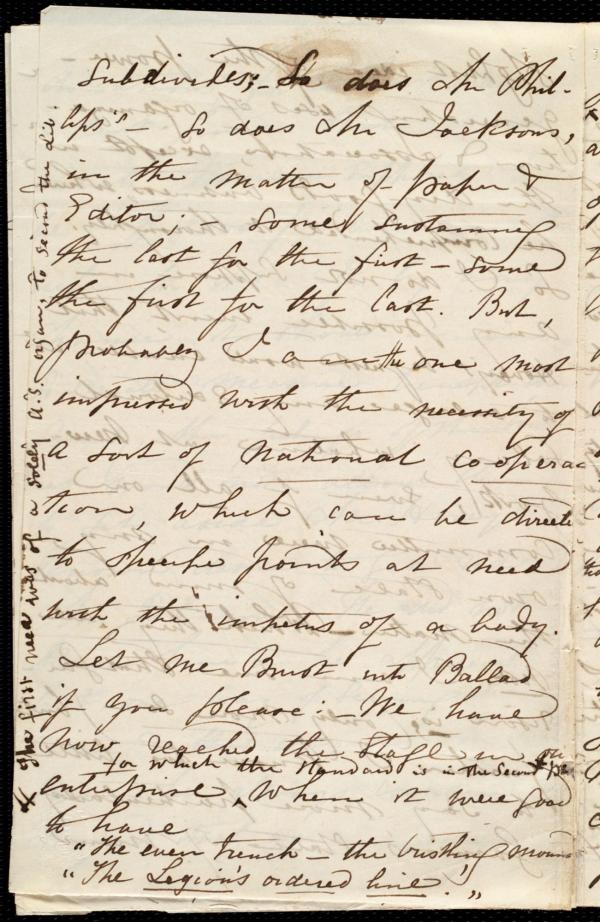 subdivides; - So does Mr Phil-
lips's - So does Mr Jacksons,
in the matter of paper &
Editor; - some sustaining
the last for the first - some
the first for the last. But,
probably I am the one most
impressed with the necessity of
a sort of national coopera
tion, which can be directe
to specific points at need
with the impetus of a body.
Let me Burst into Ballad
if you please: - We have
now reached the Stage in
for which the standard is in the Second
enterprise, ^ when it were good
to have
"The even trench - the bristling moun
"The Legion's ordered line."
x The first need was of a solely A.S. organ, to second the Lib.